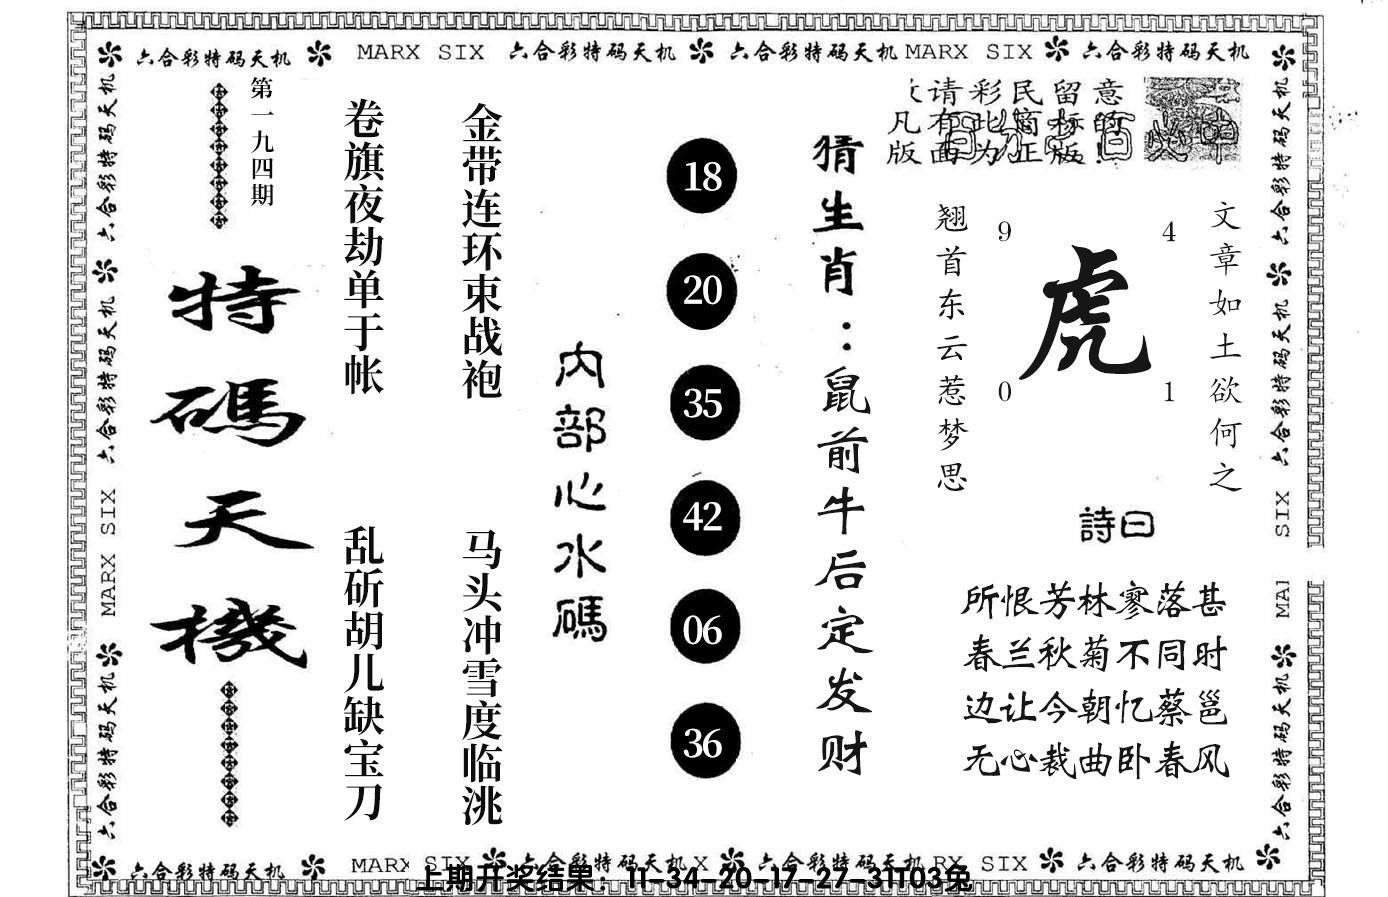 六合彩特码天机 MARX SIX 六合彩特码天机 六合彩特码天机 MARX SIX 六合彩特码天机
六合彩特码天机 六合彩特码天机 MARX SIX 六合彩特码天机
第一九四期
特碼天機
卷旗夜劫单于帐
乱斫胡儿缺宝刀
金带连环束战袍
马头冲雪度临洮
内部心水碼
18
20
35
42
06
36
猜生肖：鼠前牛后定发财
请彩民留意
凡有此商标的
版面为正版!
翘首东云惹梦思
9
4
虎
0
1
文章如土欲何之
詩曰
所恨芳林寥落甚
春兰秋菊不同时
边让今朝忆蔡邕
无心裁曲卧春风
六合彩特码天机 六合彩特码天机 SIX 六合彩特码天机
六合彩特码天机 MARX SIX 六合彩特码天机 X 六合彩特码天机 RX SIX 六合彩特码天机
上期开奖结果：11-34-20-17-27-31T03兔